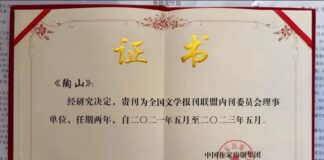 证书
《陶山》:
经研究决定，贵刊为全国文学报刊联盟内刊委员会理事
单位，任期两年，自二〇二一年五月至二〇二三年五月。
中国作家出版集团